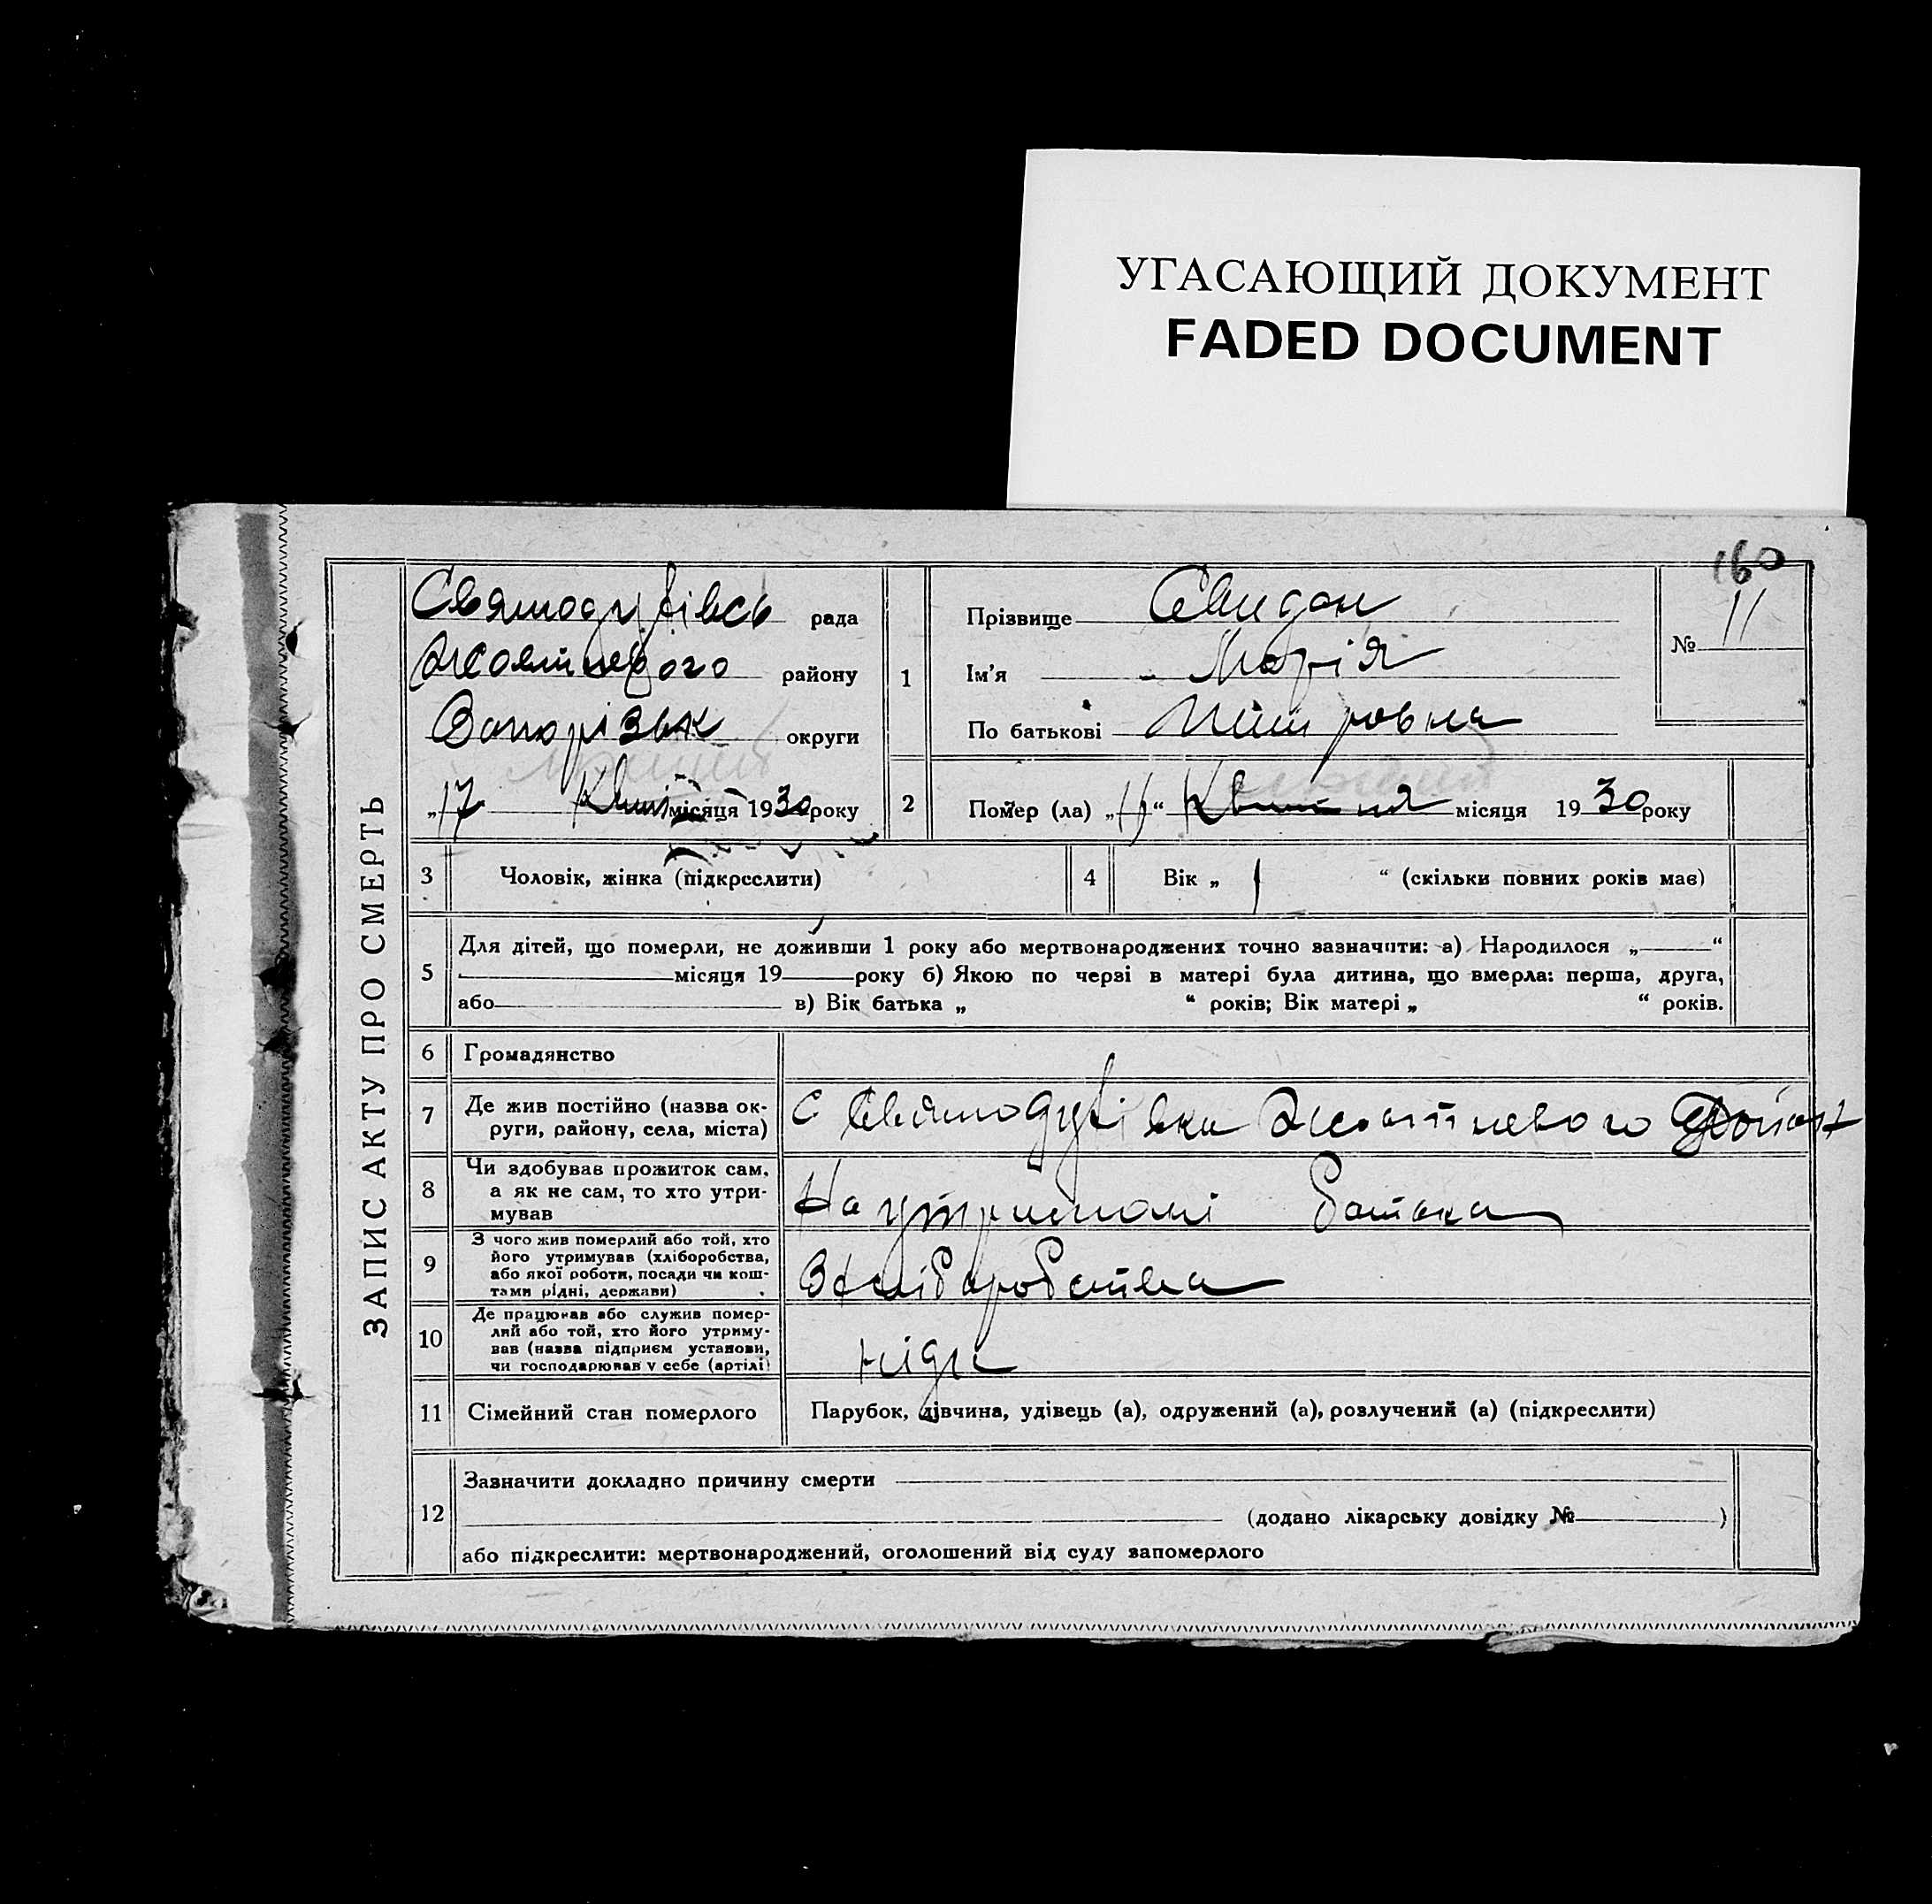 УГАСАЮЩИЙ ДОКУМЕНТ
FADED DOCUMENT
160
ЗАПИС АКТУ ПРО СМЕРТЬ
Святодухівсь рада
Жовтневого району
Запорізьк округи
„17 місяця 1930 року
1
Прізвище Свидан
Ім'я Марія
По батькові Пітровна
№ 11
2 Помер (ла) „11“ Квітня місяця 1930 року
3 Чоловік, жінка (підкреслити)
4 Вік „ 1 “ (скільки повних років має)
5 Для дітей, що померли, не доживши 1 року або мертвонароджених точно зазначити: а) Народилося „ “
місяця 19 року б) Якою по черзі в матері була дитина, що вмерла: перша, друга,
або в) Вік батька „ “ років; Вік матері „ “ років.
6 Громадянство
7 Де жив постійно (назва ок-
руги, району, села, міста)
с Святодухівка Жовтневого
8 Чи здобував прожиток сам,
а як не сам, то хто утри-
мував
На утриманні батька
9 З чого жив померлий або той, хто
його утримував (хліборобства,
або якої роботи, посади чи кош-
тами рідні, держави)
З хліборобства
10 Де працював або служив помер-
лий або той, хто його утриму-
вав (назва підприєм установи,
чи господарював у себе (артілі)
ніде
11 Сімейний стан померлого
Парубок, дівчина, удівець (а), одружений (а), розлучений (а) (підкреслити)
12 Зазначити докладно причину смерти
(додано лікарську довідку № )
або підкреслити: мертвонароджений, оголошений від суду запомерлого